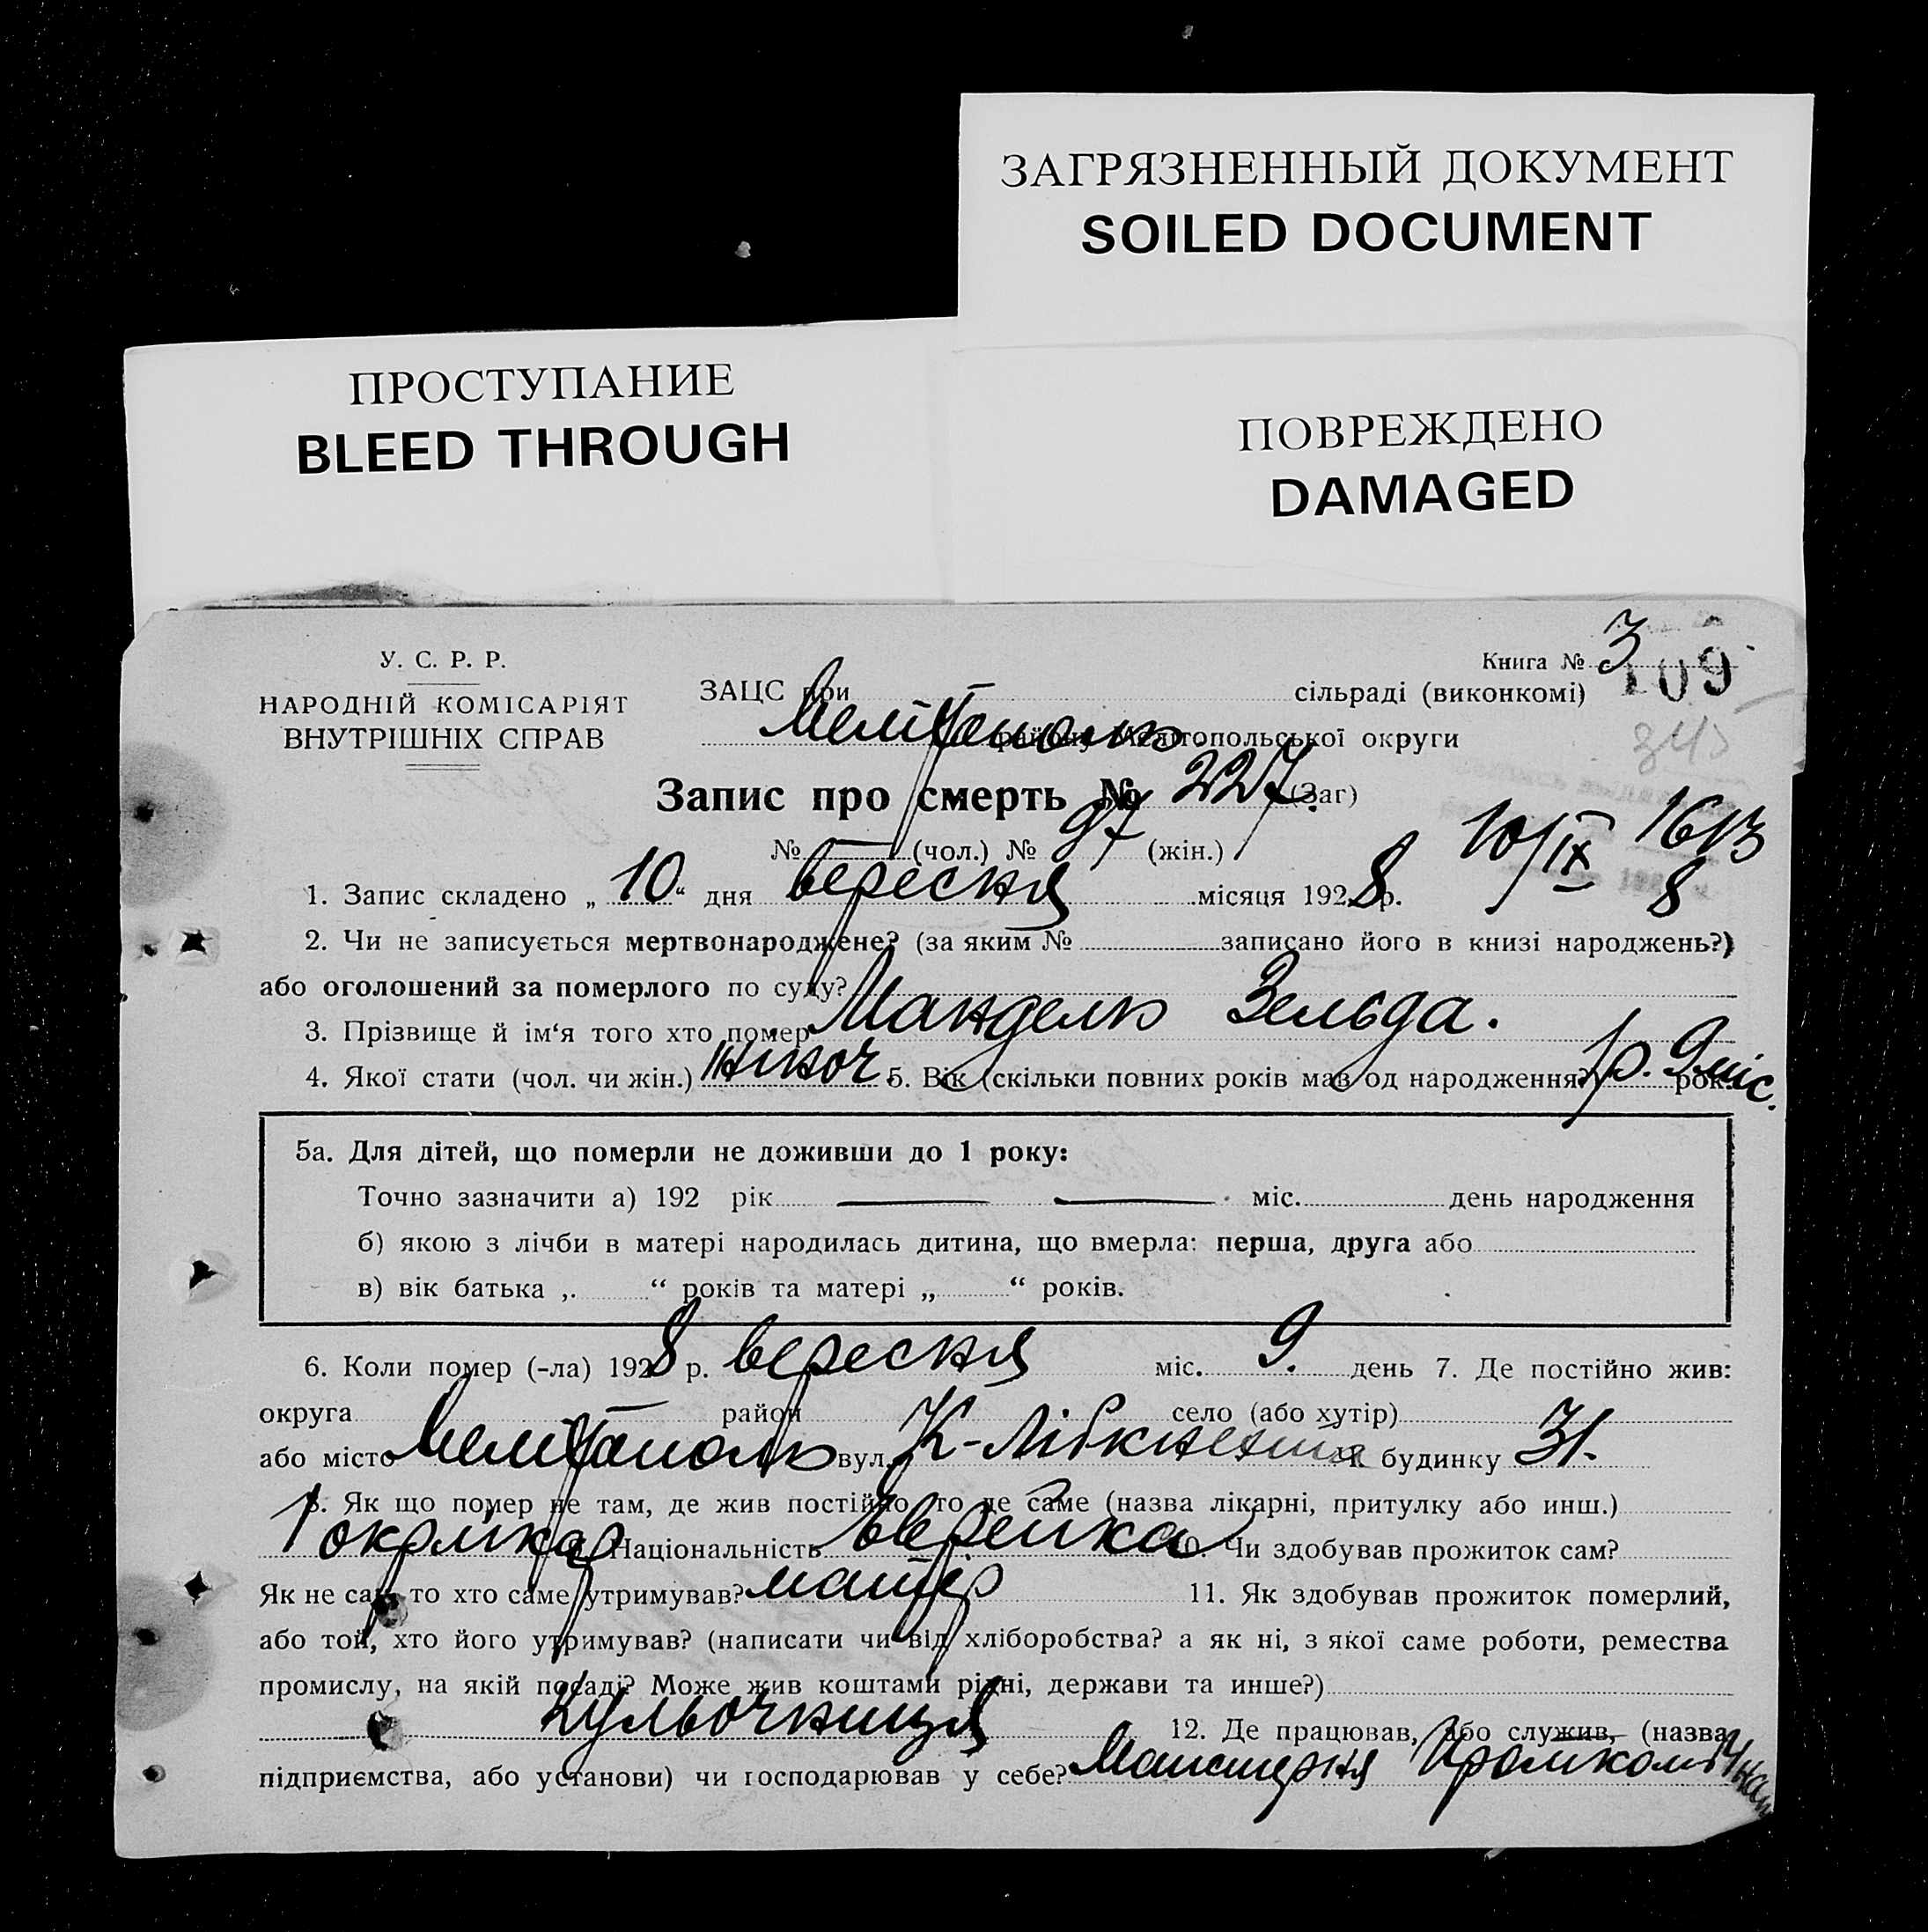 ЗАГРЯЗНЕННЫЙ ДОКУМЕНТ
SOILED DOCUMENT
ПРОСТУПАНИЕ
BLEED THROUGH
ПОВРЕЖДЕНО
DAMAGED
У. С. Р. Р.
НАРОДНІЙ КОМІСАРІЯТ
ВНУТРІШНІХ СПРАВ
Книга № 3
109
ЗАЦС при сільраді (виконкомі)
Мелітополь району Мелітопольської округи
Запис про смерть № 227 (Заг)
№ — (чол.) № 97 (жін.)
10/IX 1613
8
1. Запис складено „ 10 “ дня вересня місяця 1928 р.
2. Чи не записується мертвонароджене? (за яким № записано його в книзі народжень?)
або оголошений за померлого по суду?
3. Прізвище й ім‘я того хто помер Мандель Зельда.
4. Якої стати (чол. чи жін.) жіноч. 5. Вік (скільки повних років мав од народження? 1 р. 9 міс. рок.
5а. Для дітей, що померли не доживши до 1 року:
Точно зазначити а) 192 рік — — міс. день народження
б) якою з лічби в матері народилась дитина, що вмерла: перша, друга або
в) вік батька „ “ років та матері „ “ років.
6. Коли помер (-ла) 1928 р. вересня міс. 9. день 7. Де постійно жив:
округа район село (або хутір)
або місто Мелітополь вул. К-Лібкнехта № будинку 31.
8. Як що помер не там, де жив постійно, то де саме (назва лікарні, притулку або инш.)
1 окрлікар 9. Національність Єврейка 10. Чи здобував прожиток сам?
Як не сам, то хто саме утримував? матір 11. Як здобував прожиток померлий,
або той, хто його утримував? (написати чи від хліборобства? а як ні, з якої саме роботи, ремества
промислу, на якій посаді? Може жив коштами рідні, держави та инше?)
Кульочниця 12. Де працював, або служив, (назва
підприємства, або установи) чи господарював у себе? Майстерня